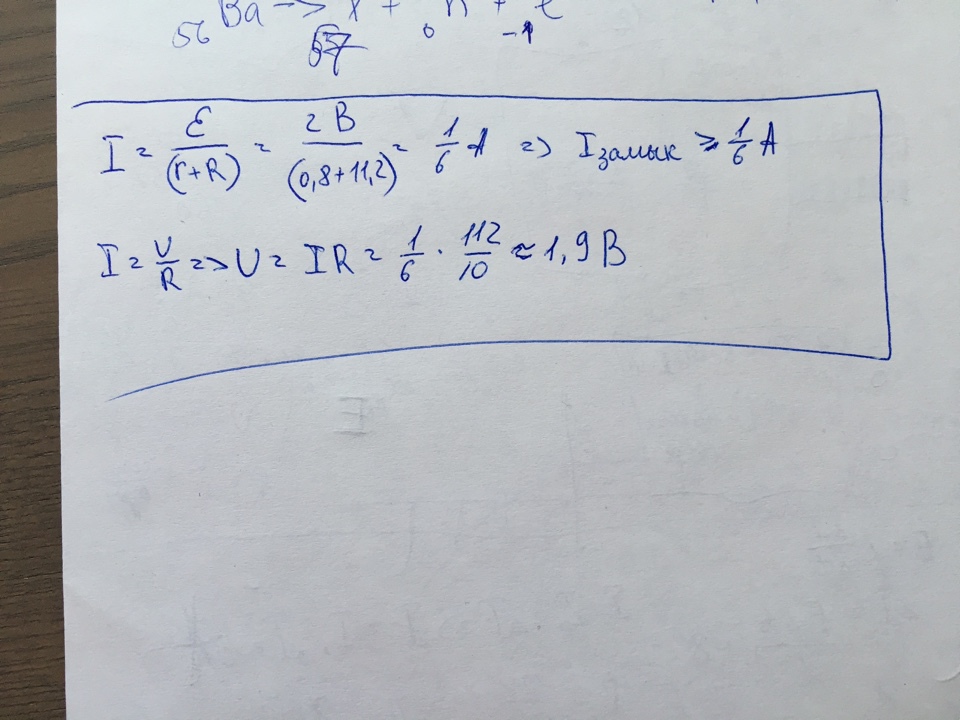 ₅₆Ba -> + ₀n + ₋₁e
57
I = ℰ/(r+R) = 2 В/(0,8+11,2) = 1/6 А => Iзамык ≥ 1/6 А
I = U/R => U = IR = 1/6 · 112/10 ≈ 1,9 В